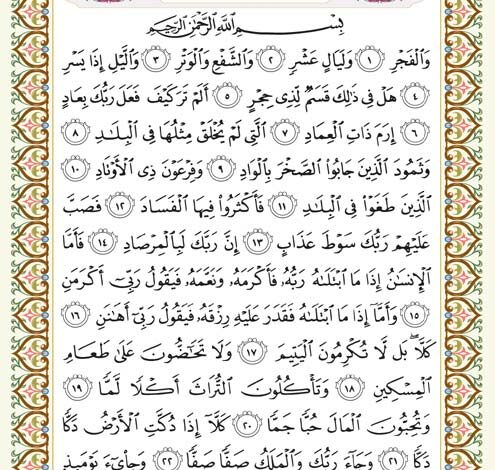 بِسْمِ ٱللَّهِ ٱلرَّحْمَٰنِ ٱلرَّحِيمِ
وَٱلْفَجْرِ ١ وَلَيَالٍ عَشْرٍ ٢ وَٱلشَّفْعِ وَٱلْوَتْرِ ٣ وَٱلَّيْلِ إِذَا يَسْرِ
٤ هَلْ فِي ذَٰلِكَ قَسَمٌ لِّذِي حِجْرٍ ٥ أَلَمْ تَرَ كَيْفَ فَعَلَ رَبُّكَ بِعَادٍ
٦ إِرَمَ ذَاتِ ٱلْعِمَادِ ٧ ٱلَّتِي لَمْ يُخْلَقْ مِثْلُهَا فِي ٱلْبِلَٰدِ ٨
وَثَمُودَ ٱلَّذِينَ جَابُوا۟ ٱلصَّخْرَ بِٱلْوَادِ ٩ وَفِرْعَوْنَ ذِي ٱلْأَوْتَادِ ١٠
ٱلَّذِينَ طَغَوْا۟ فِي ٱلْبِلَٰدِ ١١ فَأَكْثَرُوا۟ فِيهَا ٱلْفَسَادَ ١٢ فَصَبَّ
عَلَيْهِمْ رَبُّكَ سَوْطَ عَذَابٍ ١٣ إِنَّ رَبَّكَ لَبِٱلْمِرْصَادِ ١٤ فَأَمَّا
ٱلْإِنسَٰنُ إِذَا مَا ٱبْتَلَىٰهُ رَبُّهُۥ فَأَكْرَمَهُۥ وَنَعَّمَهُۥ فَيَقُولُ رَبِّيٓ أَكْرَمَنِ
١٥ وَأَمَّآ إِذَا مَا ٱبْتَلَىٰهُ فَقَدَرَ عَلَيْهِ رِزْقَهُۥ فَيَقُولُ رَبِّيٓ أَهَٰنَنِ ١٦
كَلَّا ۖ بَل لَّا تُكْرِمُونَ ٱلْيَتِيمَ ١٧ وَلَا تَحَٰٓضُّونَ عَلَىٰ طَعَامِ
ٱلْمِسْكِينِ ١٨ وَتَأْكُلُونَ ٱلتُّرَاثَ أَكْلًا لَّمًّا ١٩
وَتُحِبُّونَ ٱلْمَالَ حُبًّا جَمًّا ٢٠ كَلَّآ إِذَا دُكَّتِ ٱلْأَرْضُ دَكًّا
دَكًّا ٢١ وَجَآءَ رَبُّكَ وَٱلْمَلَكُ صَفًّا صَفًّا ٢٢ وَجِا۟يٓءَ يَوْمَئِذٍۭ